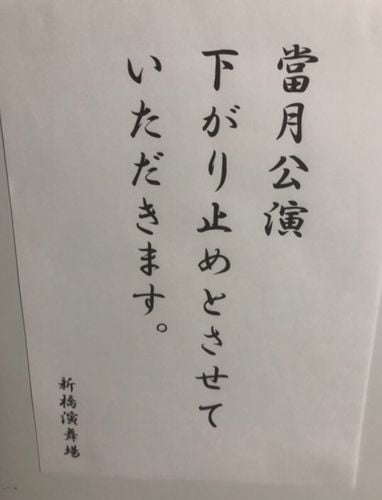 當月公演
下がり止めとさせて
いただきます。
新橋演舞場